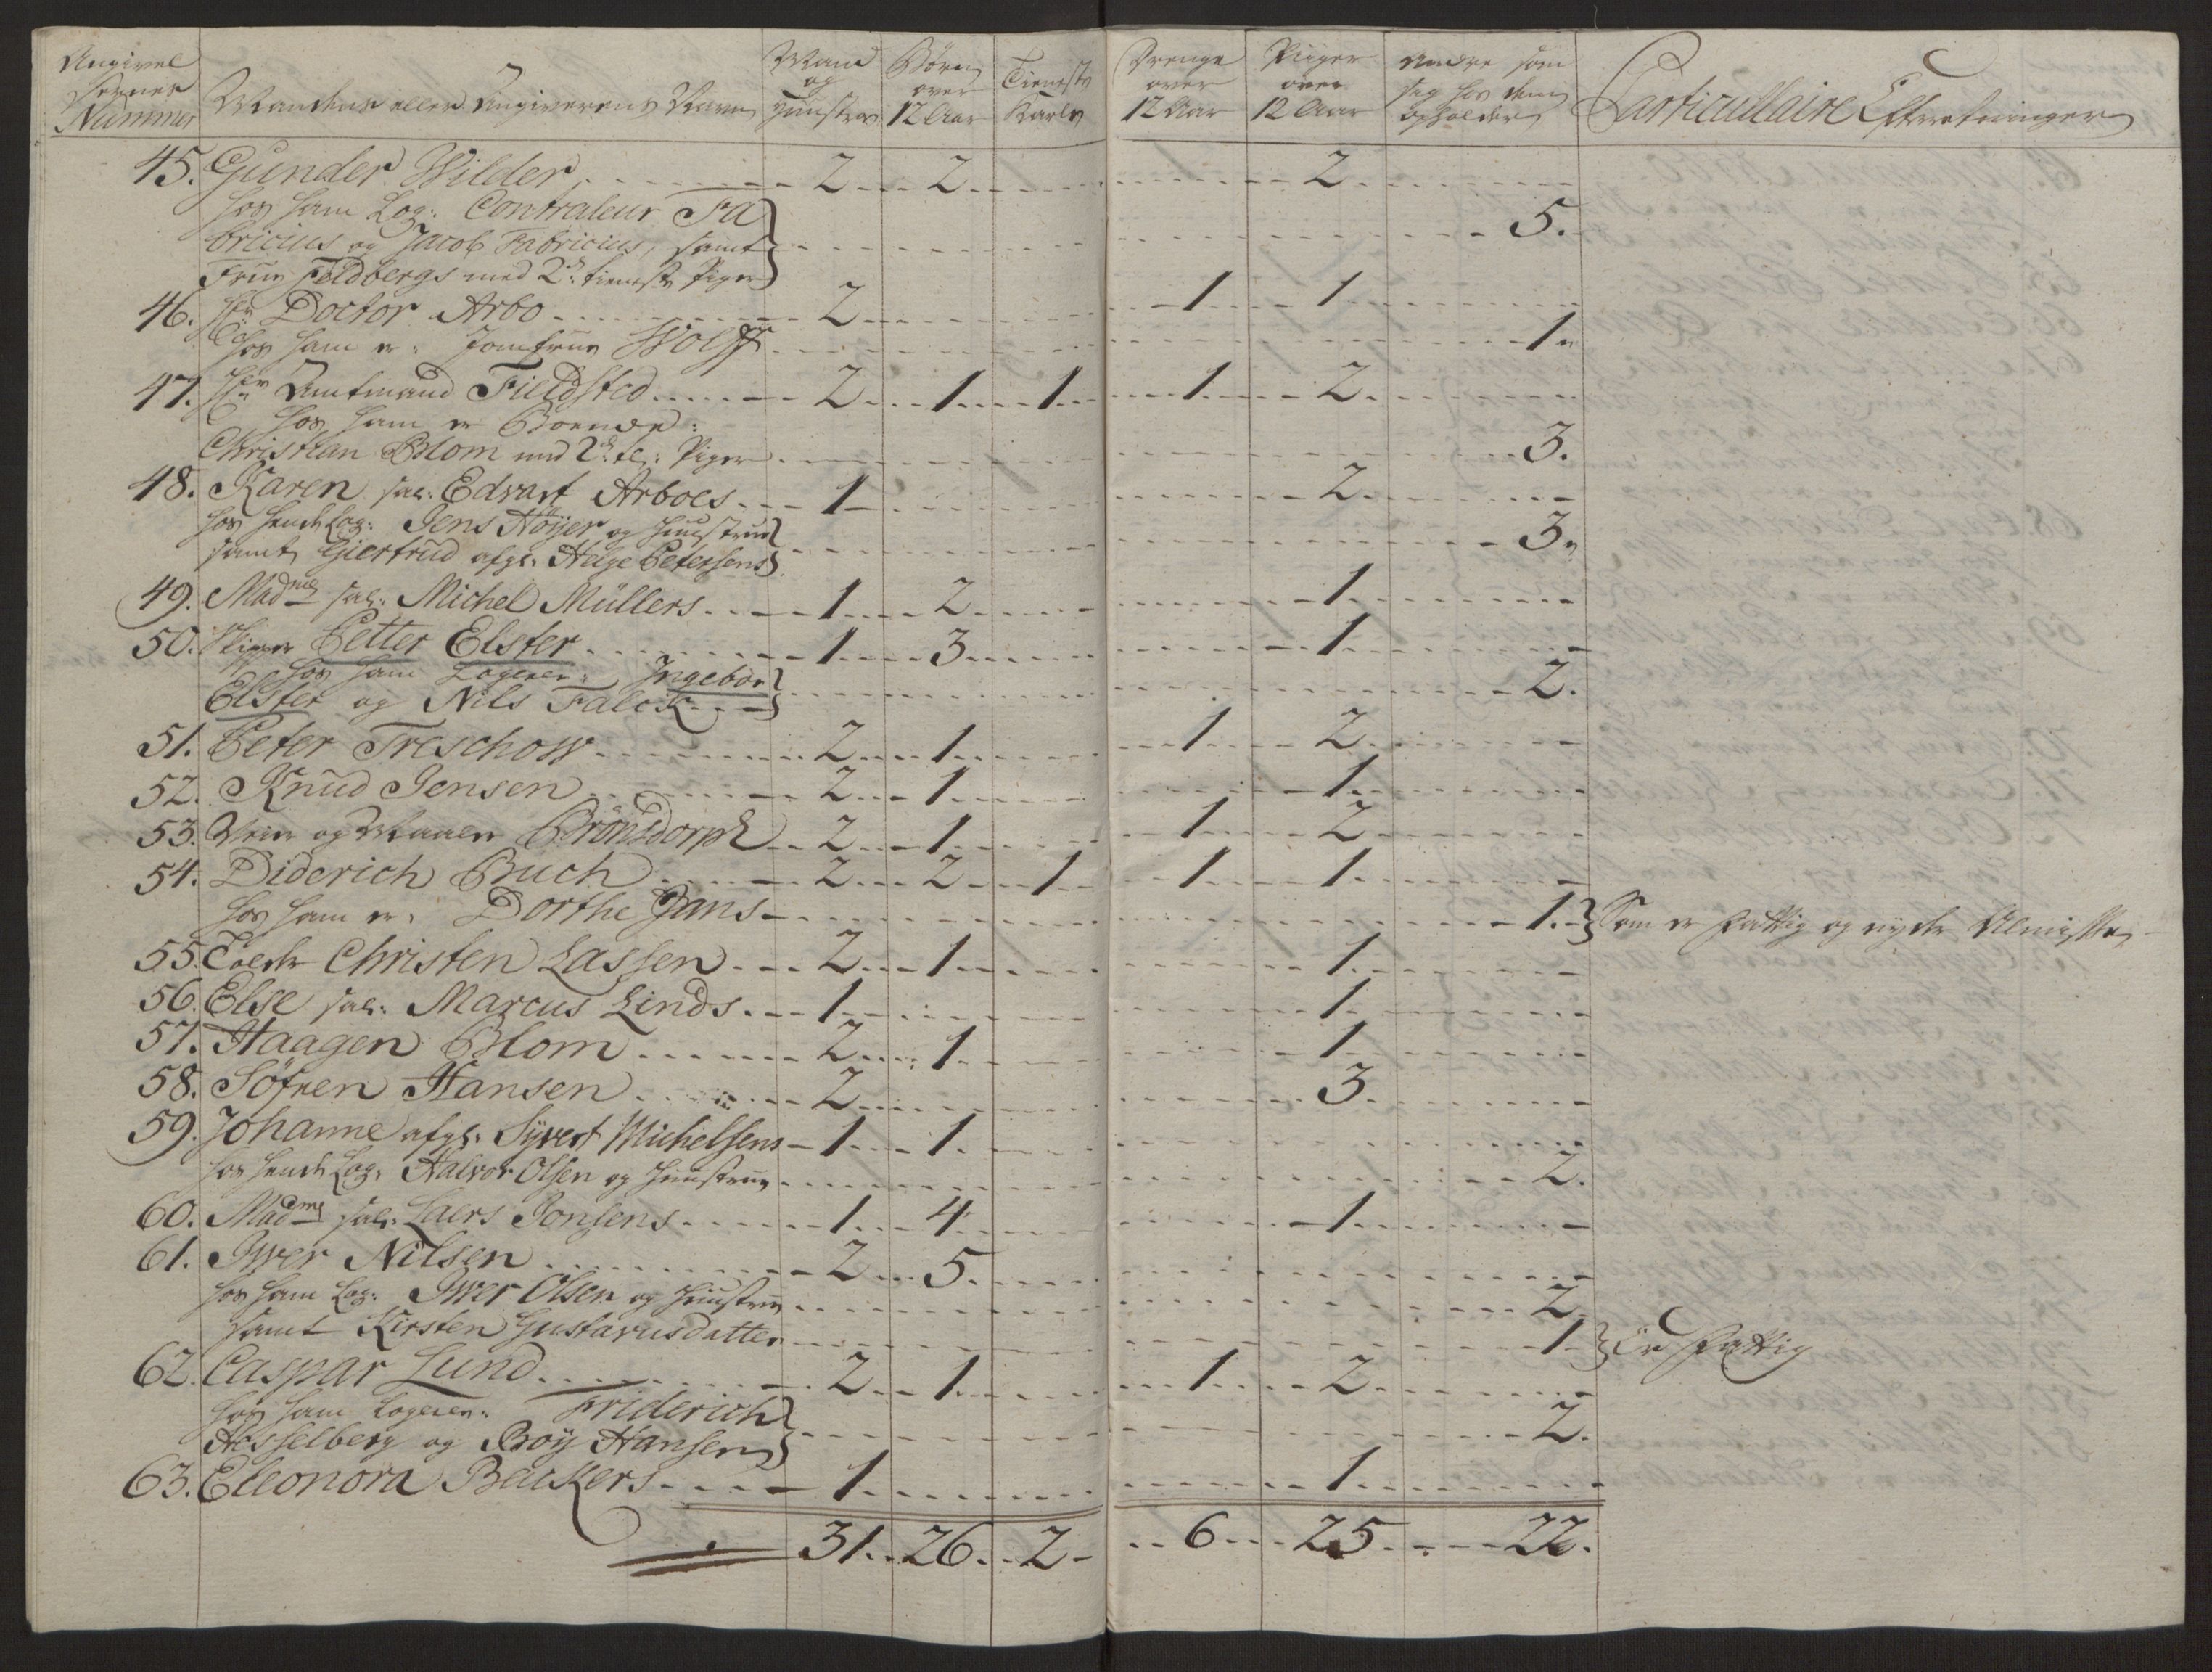 Angivel
sernes
Nummer
Mandens eller Angiverens Navn
Mand
og
Hustrue
Børn
over
12 Aar
Tieneste
Karle
Drenge
over
12 Aar
Piiger
over
12 Aar
Andre som
sig hos dem
opholder
Particullaire Efterretninger
45. Gunder Wilder 2 2 2
hos ham Log: Contraleur Fa
bricius og Jacob Fabricius, samt 5.
Frue Feldbergs med 2de tieneste Piger
46. Hr Doctor Arbo 2 1 1
hos ham er: Jomfrue Wolff 1
47. Hr Amtmand Fieldsted 2 1 1 1 2
hos ham er Boende:
Christian Blom med 2de te: Piger 3.
48. Karen sal: Edvart Arboes 1 2
hos hende Log: Jens Höyer og Huustrue
samt Giertrud afg: Helge Petersens 3
49. Madme sal: Michel Müllers 1 2 1
50. Skiper Petter Elster 1 3 1
hos ham Logerer: Ingebor
Elster og Nils Falck 2.
51. Peter Treschow 2 1 1 2
52. Knud Jensen 2 1 1
53. Veier og Maaler Brönsdorph 2 1 1 2
54. Diderich Buch 2 2 1 1 1
hos ham er: Dorthe Jans 1. Som er fattig og nyder Almisse
55. Toldr Christen Lassen 2 1 1
56. Else sal: Marcus Linds 1 1
57. Haagen Blom 2 1 1
58. Söfren Hansen 2 3
59. Johanne afg: Syvert Michelsens 1 1
hos hende Log: Halvor Olsen og Huustrue 2.
60. Madme sal: Laers Jonsens 1 4 1
61. Iver Nilsen 2 5
hos ham Log: Iver Olsen og Huustrue 2
samt Kirsten Gustavusdatter 1 Er fattig
62. Caspar Lund 2 1 1 2
hos ham Logerer: Friderich
Hesselberg og Boy Hansen 2.
63. Eleonora Backers 1 1
31 26 2 6 25 22.